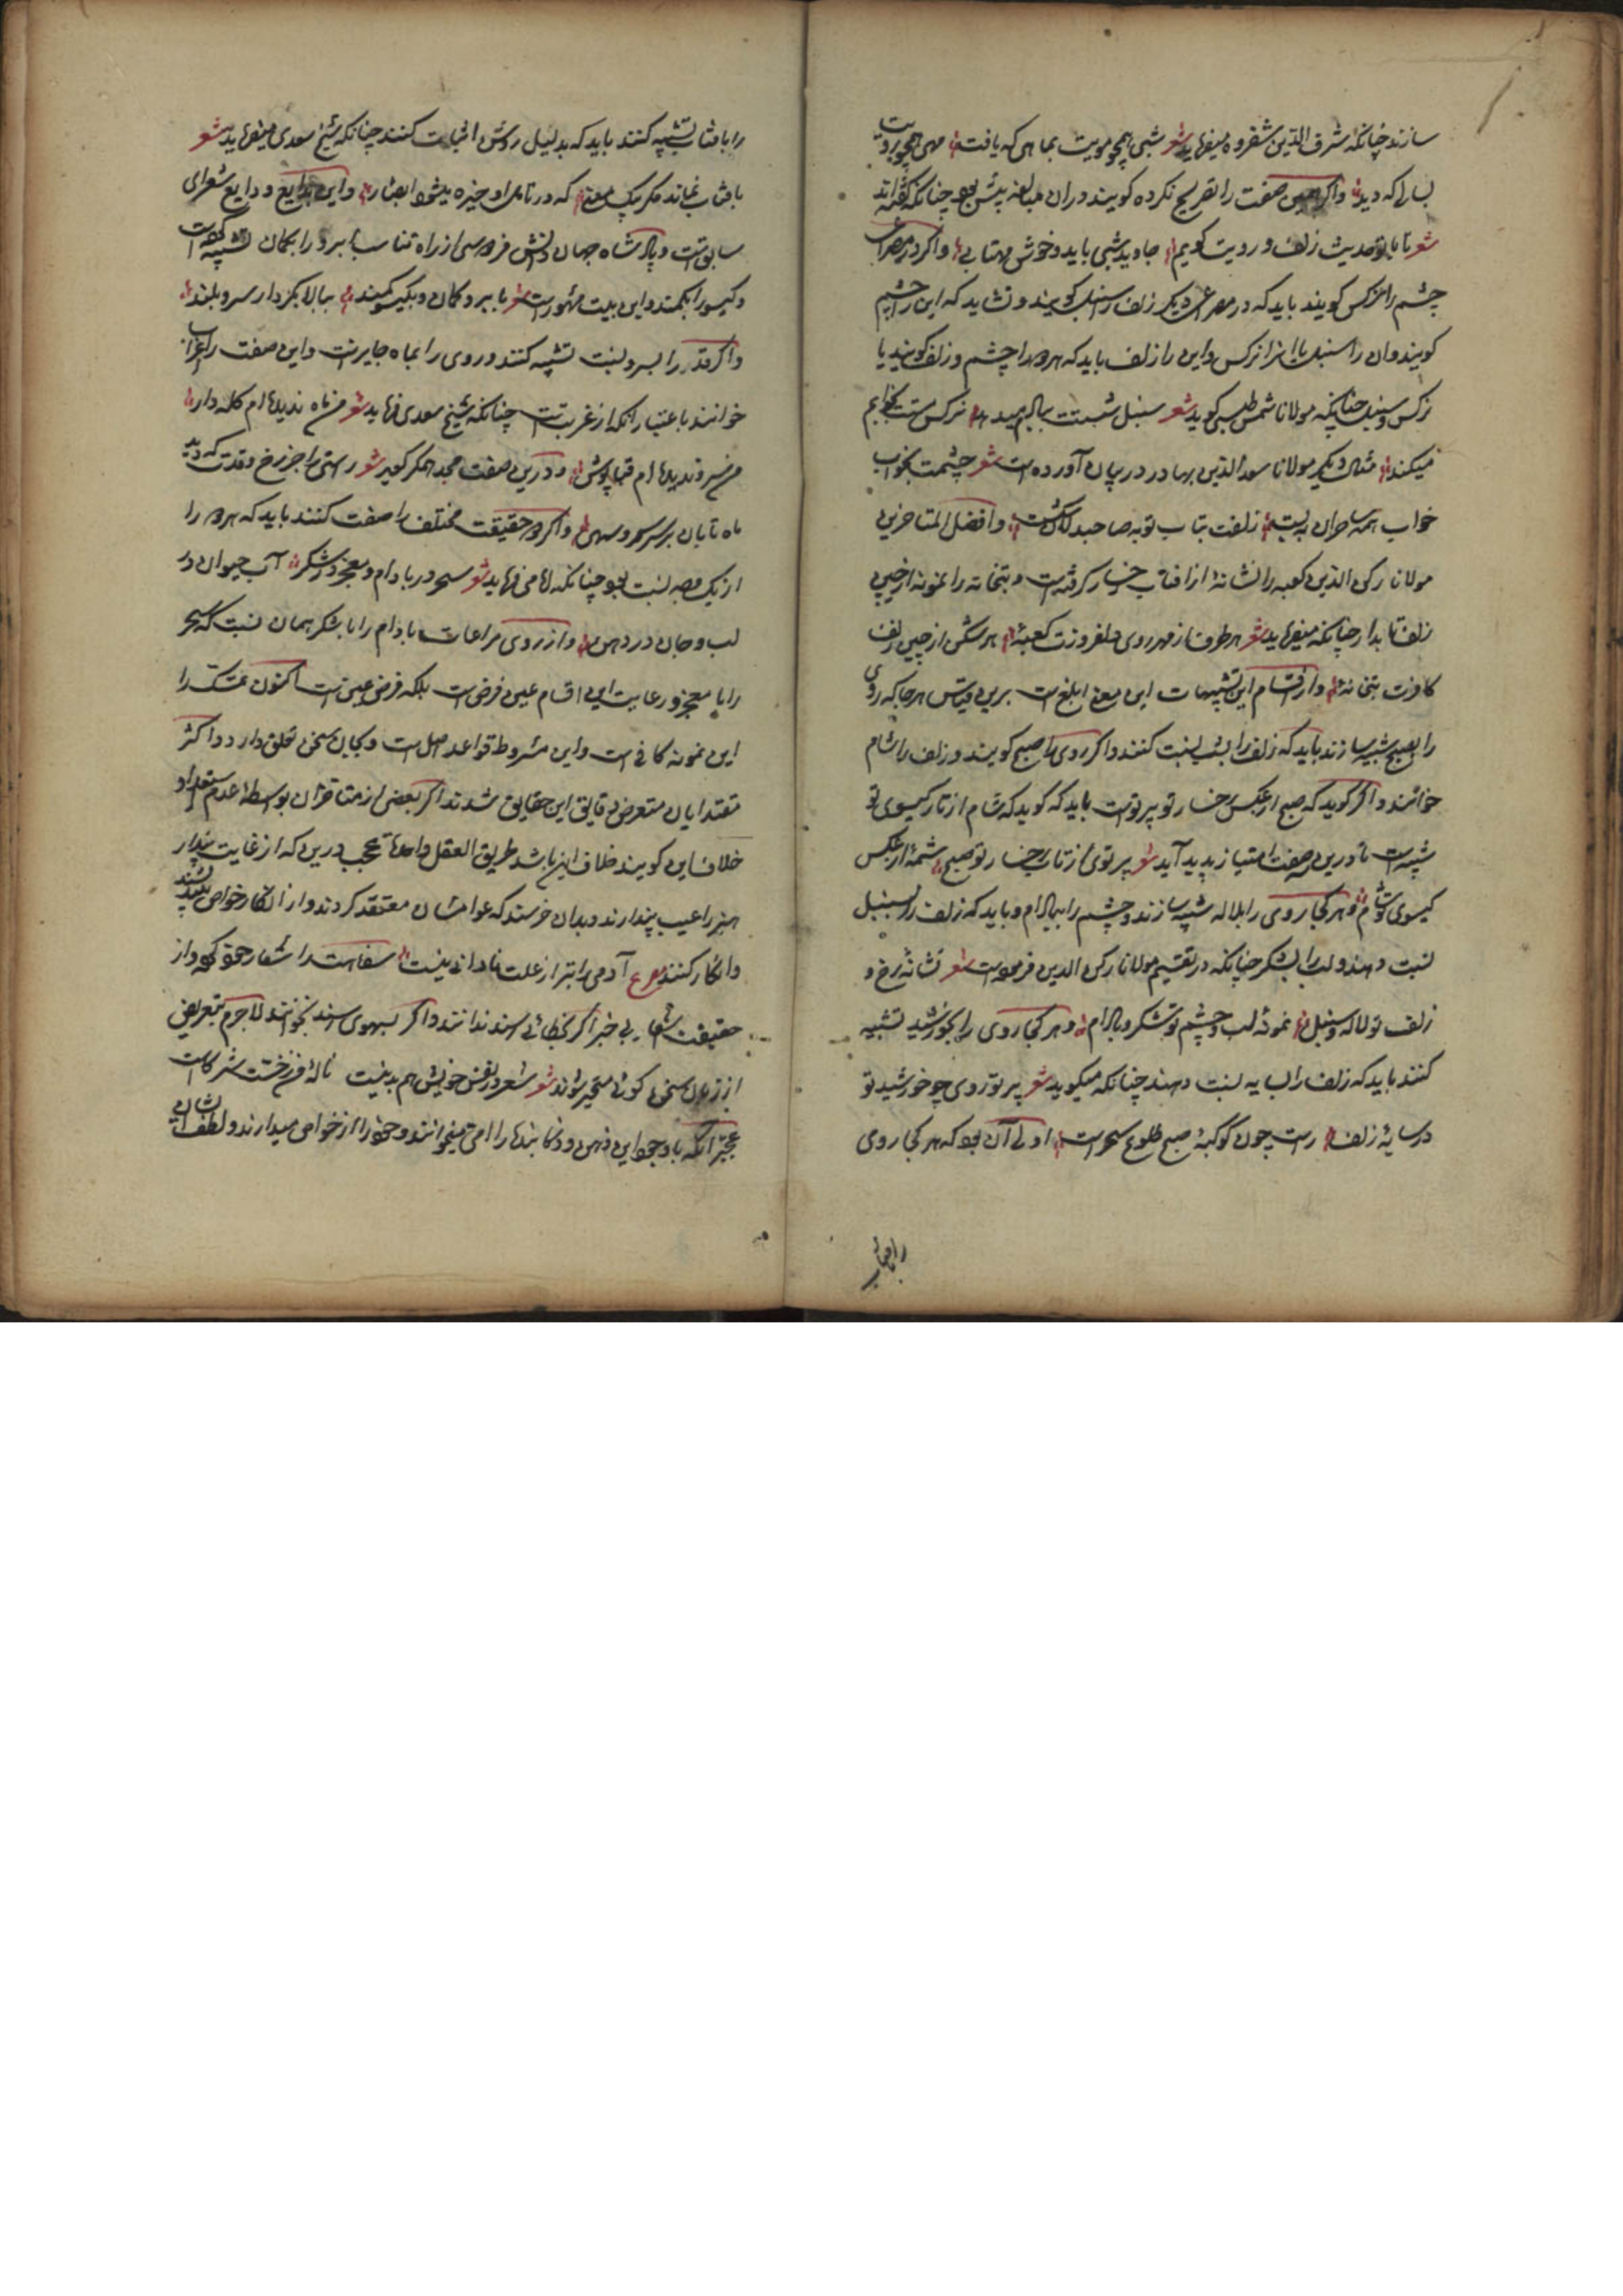 سازند چنانکه شرف الدین شفروه میفرماید شعر شبی همچو مویت بماهی که یافت مهی همچو رویت
بسالی که دید واکر صفت را تصریح نکرده کویند دران مبالغه بیش بود چنانکه گفته اند
شعر تا با تو حدیث زلف و رویت کویم جاوید شبی باید و خوش مهتابی واکر در مصراعی
چشم را نرکس کویند باید که در مصراعی دیکر زلف را سنبل کویند و نشاید که این را چشم
کویند وان را سنبل یا انرا نرکس واین را زلف باید که هر دو را چشم و زلف کویند یا
نرکس و سنبل چنانکه مولانا شمس طبسی کوید شعر سنبل نرکس مستت بخوابم
میکند مثال دیکر مولانا سعد الدین بهادر در بیان آورده است شعر چشمت بخواب
خواب همه ساحران ببست زلفت بتاب توبه صاحبدلان شکست وافضل المتاخرین
مولانا رکن الدین کعبه را نشانهٔ از افتاب رخسار کرفته است و بتخانه را نمونهٔ از چین
زلف تابدار چنانکه میفرماید شعر هر طرف از مهر روی دلفروزت کعبهٔ هر شکن از چین زلف
کافرت بتخانهٔ واز اقسام این تشبیهات این معنی ابلغ است برین قیاس هر جا که روی
را بصبح تشبیه سازند باید که زلف را بشب نسبت کنند واکر روی را صبح کویند و زلف را شام
خوانند واکر کوید که صبح از عکس رخسار تو پرتویست باید که کوید که شام از تار کیسوی تو
شبیست تا درین صفت امتیاز پدید آید شعر پرتوی از تاب رخسار تو صبح شمهٔ از عکس
کیسوی تو شام وهر کجا روی را بلاله تشبیه سازند و چشم را ببادام و باید که زلف را بسنبل
نسبت دهند و لب را بشکر چنانکه در تقسیم مولانا رکن الدین فرموده است شعر نشانهٔ رخ و
زلف تو لاله و سنبل نمونهٔ لب و چشم تو شکر و بادام وهر کجا روی را بخورشید تشبیه
کنند باید که زلف را بسایه نسبت دهند چنانکه میکوید شعر پرتو روی چو خورشید تو
در سایهٔ زلف راست چون کوکبهٔ صبح طلوع سحرست اولی آن بود که هر کجا روی
را بافتاب
را بافتاب تشبیه کنند باید که بدلیل روشن اثبات کنند چنانکه شیخ سعدی میفرماید شعر
بافتاب نماند مکر بیک معنی که در تامل او خیره میشود ابصار واین بدایع و دایع شعرای
سابقست و پادشاه جهان دانش فردوسی از راه تناسب ابرو را بکمان تشبیه کرده است
و کیسو را بکمند واین بیت مشهورست شعر بابرو کمان و بکیسو کمند ببالا بکردار سرو بلند
واکر قد را بسرو نسبت تشبیه کنند و روی را بماه جایزست واین صفت را اغراب
خوانند باعتبار آنکه از غرابتست چنانکه شیخ سعدی فرماید شعر من ماه ندیده ام کله دار
من سرو ندیده ام قباپوش ودرین صفت مجد همکر کوید شعر راستی را جز رخ و قدت که دید
ماه تابان بر سر سرو سهی واکر دو حقیقت مختلف را صفت کنند باید که هر دو را
از یک وجه نسبت بود چنانکه امامی فرماید شعر سحر در بادام و معجز در شکر آب حیوان در
لب و جان در دهن واز روی مراعات بادام را با شکر همان نسبت که سحر
را با معجز و رعایت این اقسام عین فرض است بلکه فرض عین است اکنون تمسک را
این نمونه کافی است واین مشروط قواعد اصل است و بجان سخن تعلق دارد واکثر
مقتدایان متعرض دقایق این حقایق شدند اکر بعضی از متاخران بواسطهٔ عدم استعداد
خلاف این کویند خلاف این باشد طریق العقل واحد تعجب درین که از غایت پندار
هنر را عیب پندارند وبدان خرسند که عوامشان معتقد کردند واز انکار خواص نیندیشند
وانکار کنند مصرع آدمی را بتر از علت نادانی نیست سفاهت را شعار حمق کرده واز
حقیقت شعار بی خبر اکر بخطائی رسند ندانند واکر بسهوی رسند بخوانند لاجرم بتعریض
از زبان سخن کوی متحیر شوند شعر شعر در نفس خویش هم بد نیست ناله من ز خست شرکاست
عجبتر آنکه باوجود این ذهن و ذکا بندها را امی میخوانند و خود را از خواص میدارند و لطف ایشان